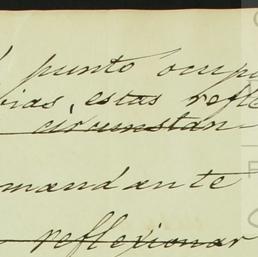 punto ocup
bias, estas refle
circunstan
mandante
reflexionar